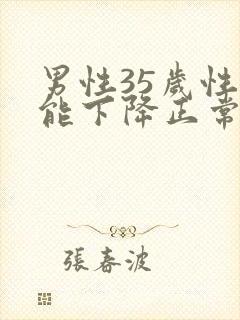 男性35歲性
能下降正常
張春波